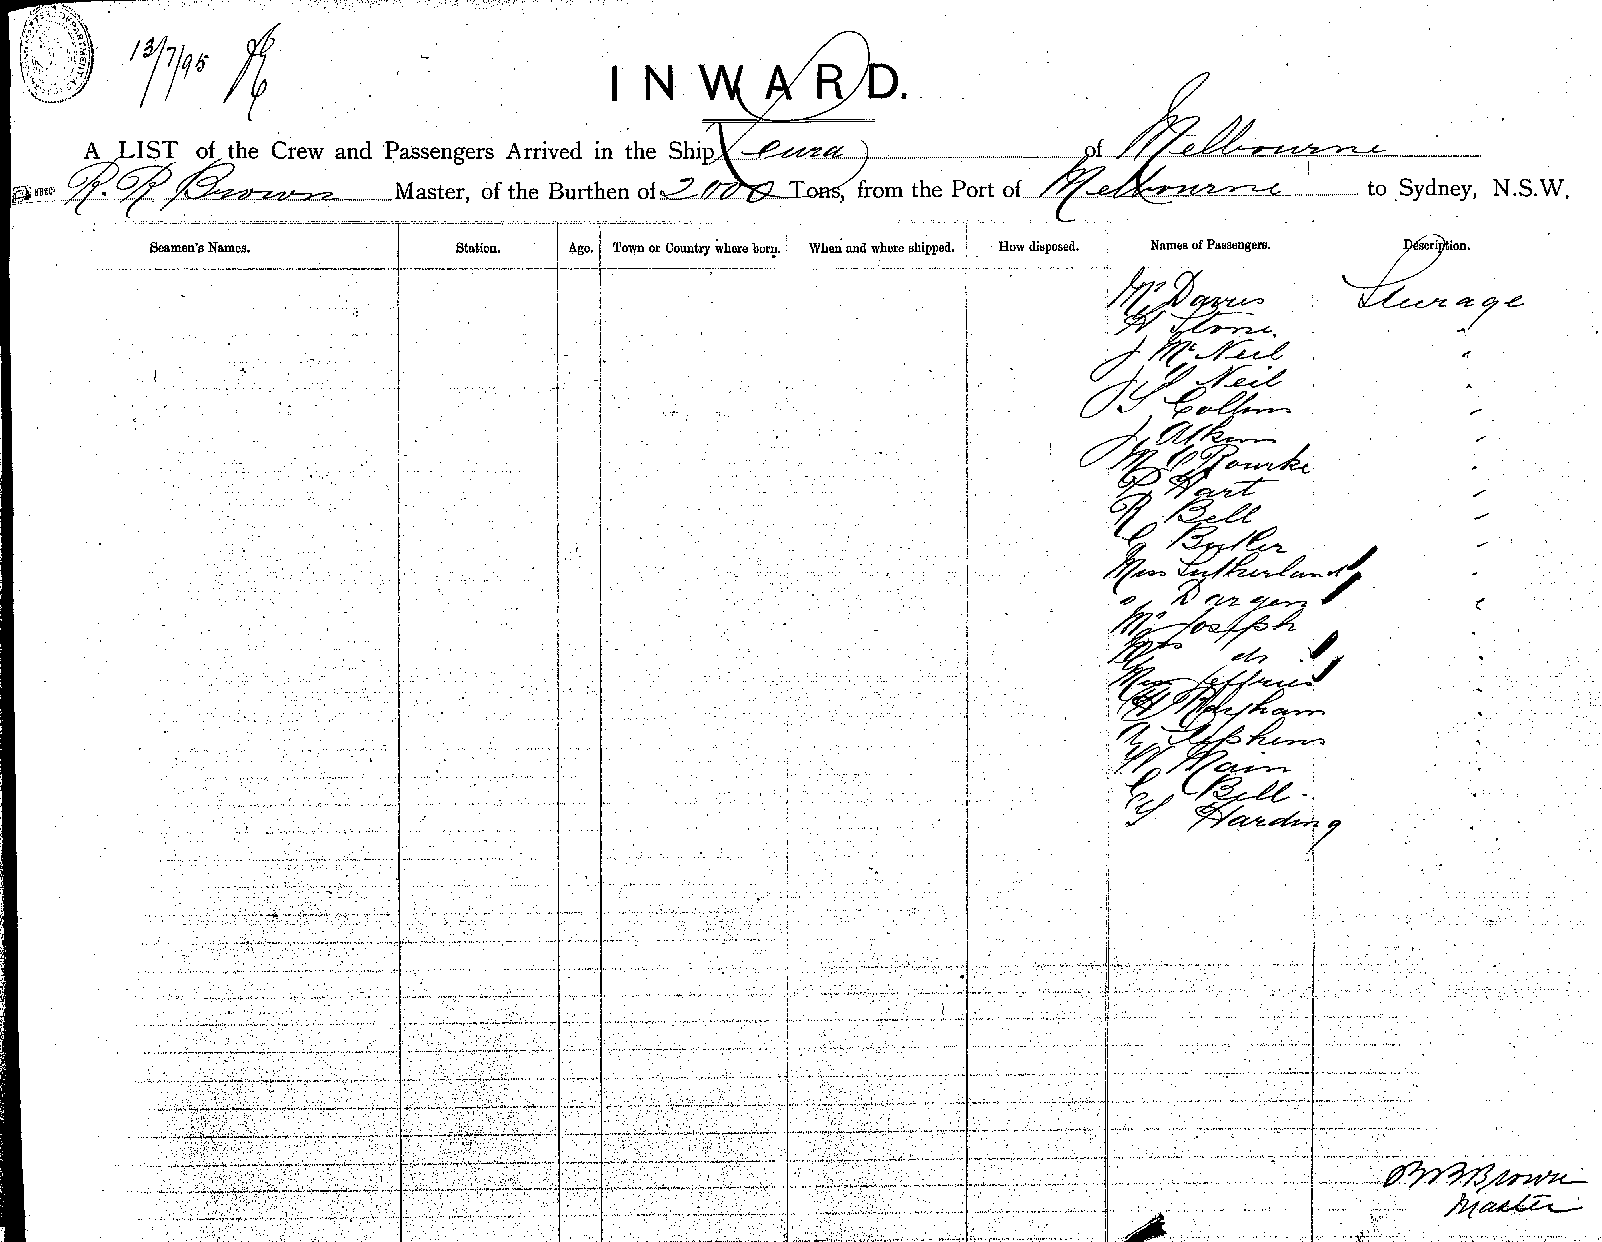 13/7/95
INWARD.
A LIST of the Crew and Passengers Arrived in the Ship Peura of Melbourne
R. R Brown Master, of the Burthen of 2000 Tons, from the Port of Melbourne to Sydney, N.S.W.
Seamen's Names. Station. Age. Town or Country where born. When and where shipped. How disposed. Names of Passengers. Description.
Mr Davies Steerage
H Stone "
J McNeil "
J S Neil "
J S Collins "
J Atkins "
M O Rourke "
P Hart "
R Bell "
G Butler "
Miss Sutherland "
" Dargen "
Mr Joseph "
Mrs do "
Miss Jeffries "
H "
Stephens "
W Main "
G Bell "
G S Harding "
Brown
Master